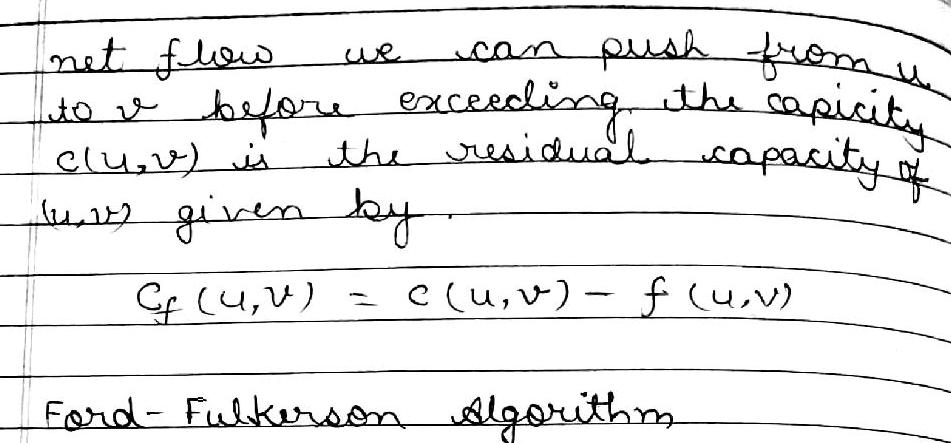 net flow we can push from u
to v before exceeding the capicity
c(u,v) is the residual capacity of
(u,v) given by.
Cf (u,v) = c(u,v) - f (u,v)
Ford-Fulkerson Algorithm